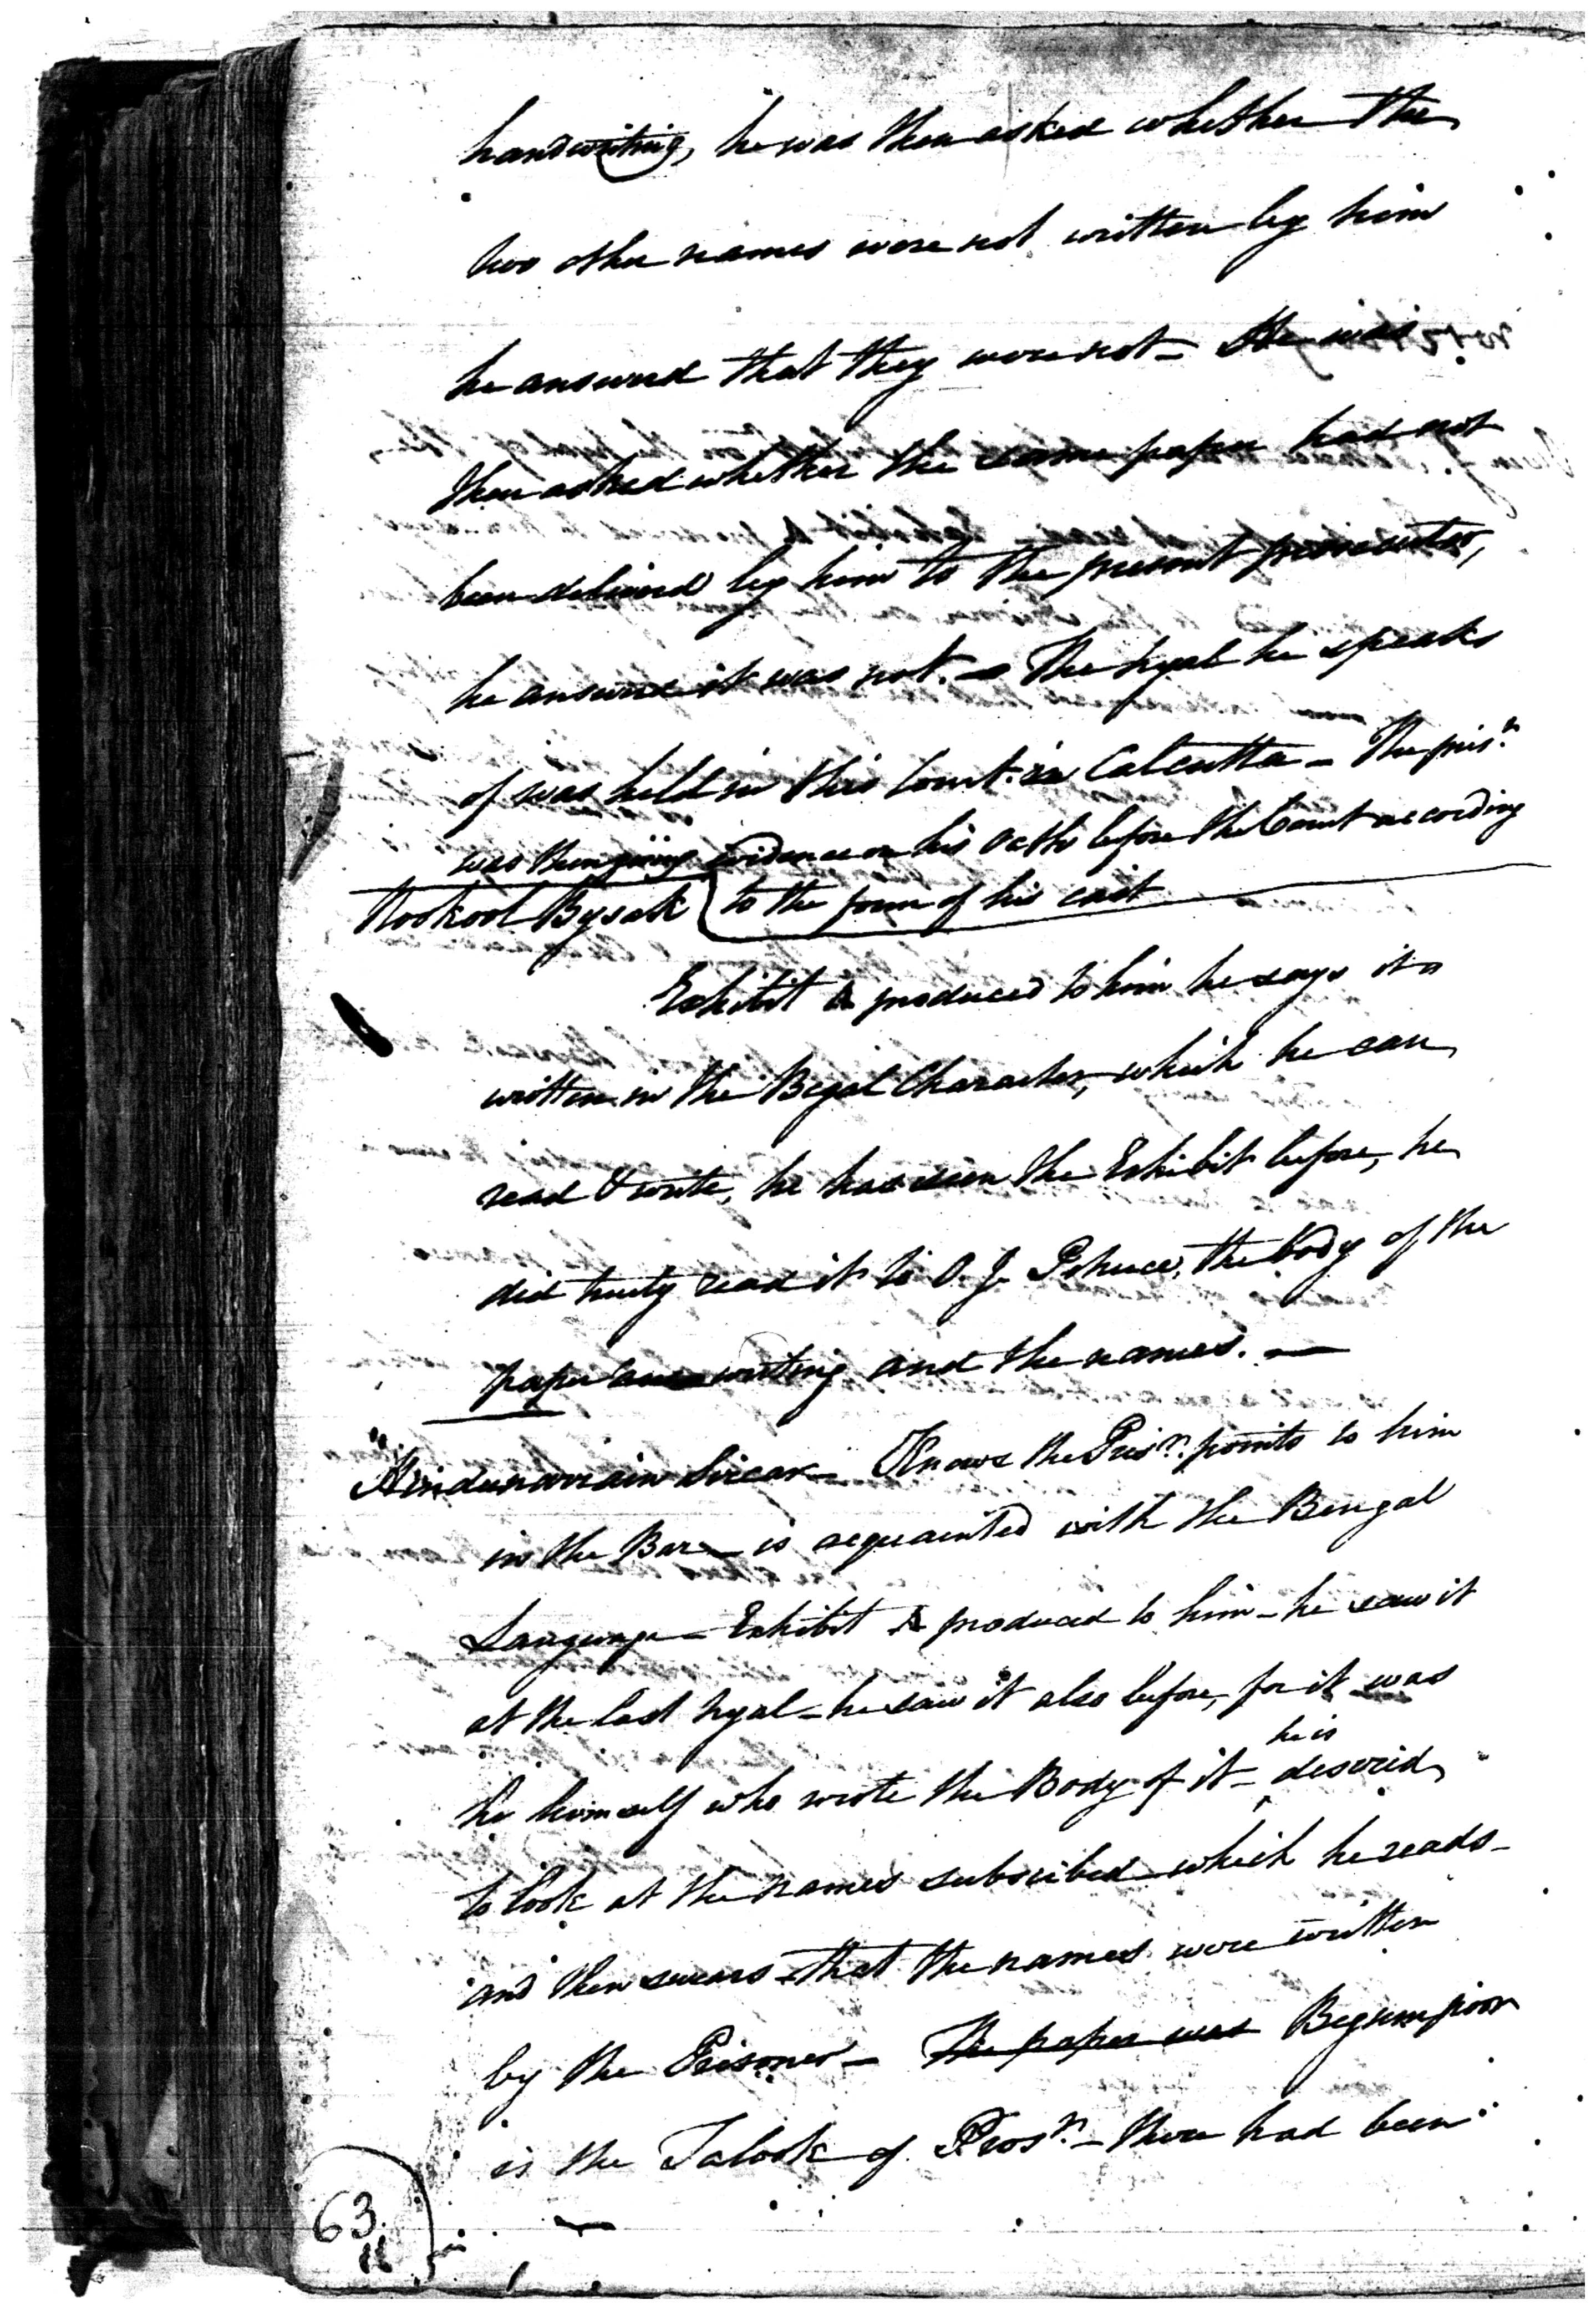 handwriting, he was then asked whether the
two other names were not written by him
he answered that they were not – He was
then asked whether the same paper had not
been delivered by him to the present prosecutor,
he answered it was not. – The tryal he speaks
of was held in this Court in Calcutta – The pris.r
was then giving evidence on his Oath before the Court according
Nookool Bysak to the form of his cast
Exhibit A produced to him he says it is
written in the Begal Character, which he can
read & write, he has seen the Exhibit before, he
did truly read it to O. J. the body of the
paper writing and the names. –
Sircar – Knows the Pris.r points to him
in the Bar – is acquainted with the Bengal
Language – Exhibit A produced to him – he saw it
at the last tryal – he saw it also before, for it was
he is
he himself who wrote the Body of it – desired
to look at the names subscribed which he reads –
and then swears that the names were written
by the Prisoner – The paper was Begumpoor
is the Talook of Pros.r – there had been
63